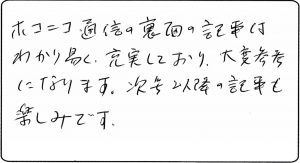 ホコニコ通信の裏面の記事は
わかり易く、充実しており、大変参考
になります。次号以降の記事も
楽しみです。